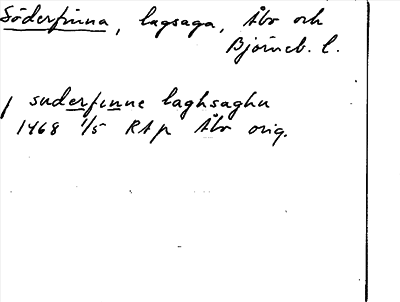 Söderfinna, lagsaga, Åbo och
Björneb. l.
suderfinne laghsaghu
1468 1/5 RAp Åbo orig.